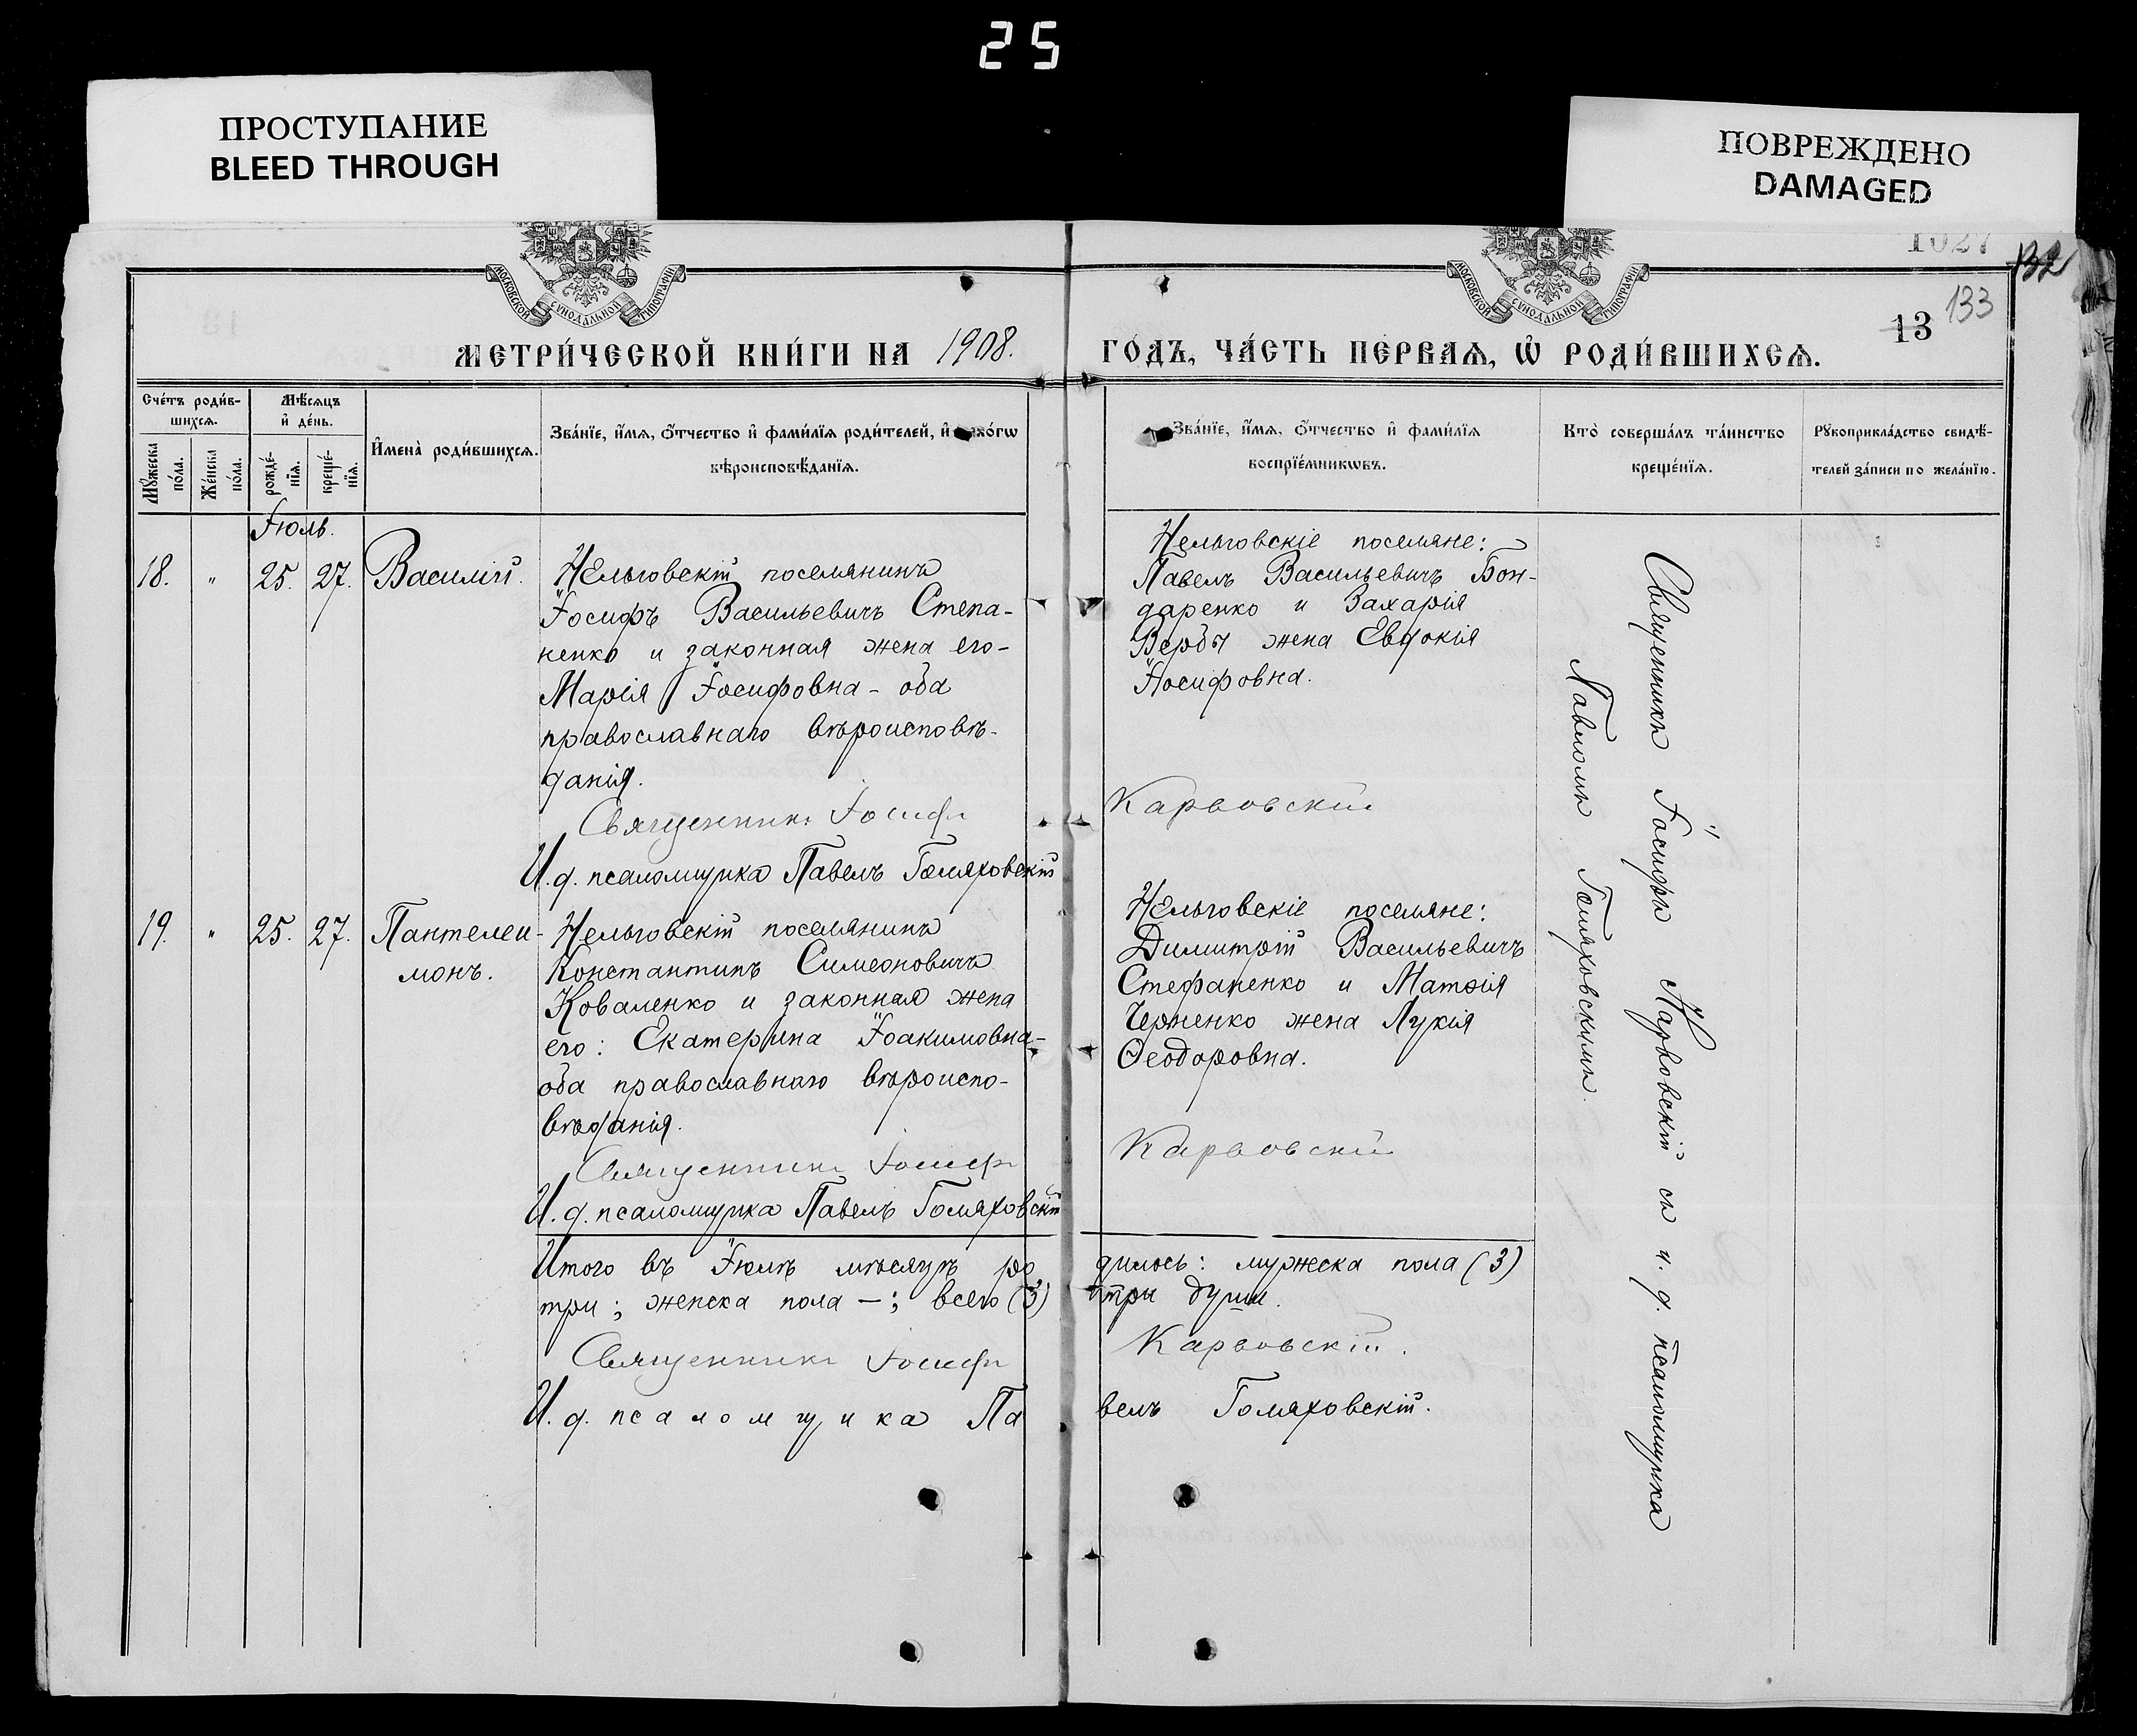 25
ПРОСТУПАНИЕ
BLEED THROUGH
ПОВРЕЖДЕНО
DAMAGED
1027
132
133
13
МОСКОВСКОЙ СѴНОДАЛЬНОЙ ТИПОГРАФІИ
МОСКОВСКОЙ СѴНОДАЛЬНОЙ ТИПОГРАФІИ
МЕТРИ́ЧЕСКОЙ КНИ́ГИ НА 1908.
ГО́ДЪ, ЧА́СТЬ ПЕ́РВАѦ, Ѡ҆ РОДИ́ВШИХСѦ.
Сче́тъ роди́в-
шихсѧ.
Мꙋ́жеска
по́ла.
Же́нска
по́ла.
Мѣ́сѧцъ
и҆ де́нь.
рожде́-
нїѧ.
креще́-
нїѧ.
И҆мена̀ роди́вшихсѧ.
Зва́нїе, и҆́мѧ, ѻ҆́тчество и҆ фами́лїѧ роди́телей, и҆
вѣроисповѣ́данїѧ.
Зва́нїе, и҆́мѧ, ѻ҆́тчество и҆ фами́лїѧ
воспрїе́мникѡвъ.
Кто̀ соверша́лъ та́инство
креще́нїѧ.
Рꙋкоприкла́дство свидѣ́-
телей за́писи по жела́нїю.
Іюль.
18. " 25. 27. Василій.
Нельговскій поселянинъ
Іосифъ Васильевичъ Степа-
ненко и законная жена его-
Марія Іосифовна - оба
православнаго вѣроисповѣ-
данія.
Священникъ Іосифъ
И. д. псаломщика Павелъ Голяховскій
Нельговскіе поселяне:
Павелъ Васильевичъ Бон-
даренко и Захарія
Вербы жена Евдокія
Іосифовна.
Карвовскій
19. " 25. 27. Пантелеи-
монъ.
Нельговскій поселянинъ
Константинъ Симеоновичъ
Коваленко и законная жена
его: Екатерина Іоакимовна-
оба православнаго вѣроиспо-
вѣданія.
Священникъ Іосифъ
И. д. псаломщика Павелъ Голяховскій
Нельговскіе поселяне:
Димитрій Васильевичъ
Стефаненко и Матѳія
жена Лукія
Ѳеодоровна.
Карвовскій
Священникъ Іосифъ Карвовскій съ и. д. псаломщика
Павломъ Голяховскимъ.
Итого въ Іюлѣ мѣсяцѣ ро
дилось: мужеска пола (3)
три; женска пола —; всего (3)
три души.
Священникъ Іосифъ
Карвовскій.
И. д. псаломщика Па
велъ Голяховскій.